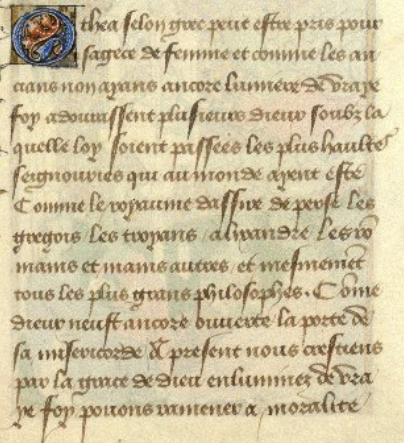 Othea selon grec peut estre pris pour
sagece de femme et comme les an
ciens non ayans ancore lumiere de vraye
foy adourassent plusieurs dieux soubz la
quelle loy soient passees les plus haultes
seignouries qui au monde ayent este
Comme le royaume dassire de perse les
gregois les troyans alixandre les ro
mains et mains autres et mesmement
tous les plus grans philosophes. Come
dieux neust ancore ouverte la porte de
sa misericorde A present nous crestiens
par la grace de dieu enluminez de vra
ye foy pouons ramener a moralite